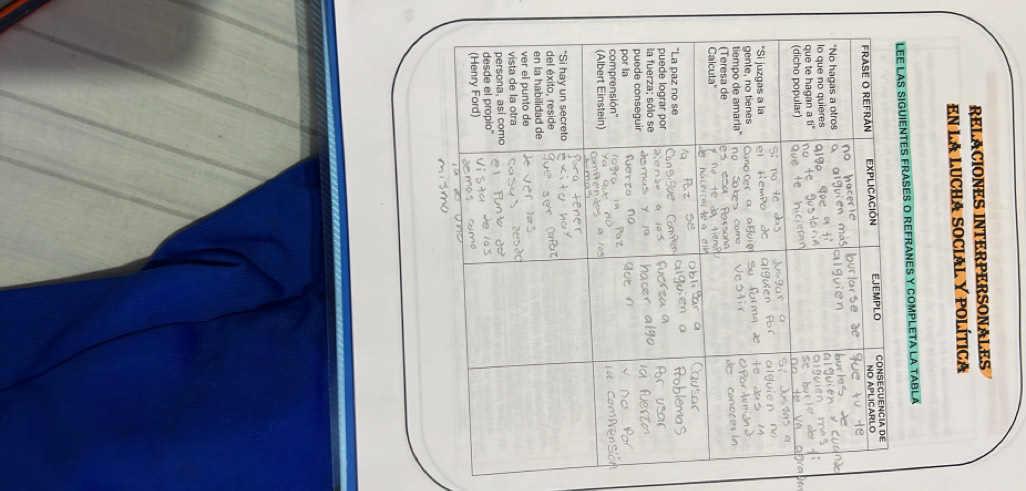 RELACIONES INTERPERSONALES
EN LA LUCHA SOCIAL Y POLÍTICA
LEE LAS SIGUIENTES FRASES O REFRANES Y COMPLETA LA TABLA
FRASE O REFRÁN
EXPLICACIÓN
EJEMPLO
CONSECUENCIA DE
NO APLICARLO
"No hagas a otros
lo que no quieres
que te hagan a ti"
(dicho popular)
no hacerle
a alguien mas
algo que a ti
no te gustaria
que te hicieran
burlarse de
alguien
que tu te
burles de
alguien y cuando
alguien mas
se burle de ti
no te va
"Si juzgas a la
gente, no tienes
tiempo de amarla"
(Teresa de
Calcuta"
si no te das
el tiempo de
conocer a alguien
no sabes como
es esa persona
y no te da tiempo
de
Juzgar a
alguien por
su forma de
vestir
si juzgas a
alguien no
te das la
oportunidad
de conocerlo
"La paz no se
puede lograr por
la fuerza; sólo se
puede conseguir
por la
comprensión"
(Albert Einstein)
la Paz se
consigue
a los
demas y la
fuerza no
logra la paz
ya que no
comprendes a los
demas
obligar a
alguien a
fuerza a
hacer algo
que n
Causar
Problemas
Por usar
la fuerza
y no por
la comprension
"Si hay un secreto
del éxito, reside
en la habilidad de
ver el punto de
vista de la otra
persona, así como
desde el propio"
(Henry Ford)
Para tener
exito hay
que ser
de ver las
cosas desde
el Punto de
vista de los
demas como
la de uno
mismo